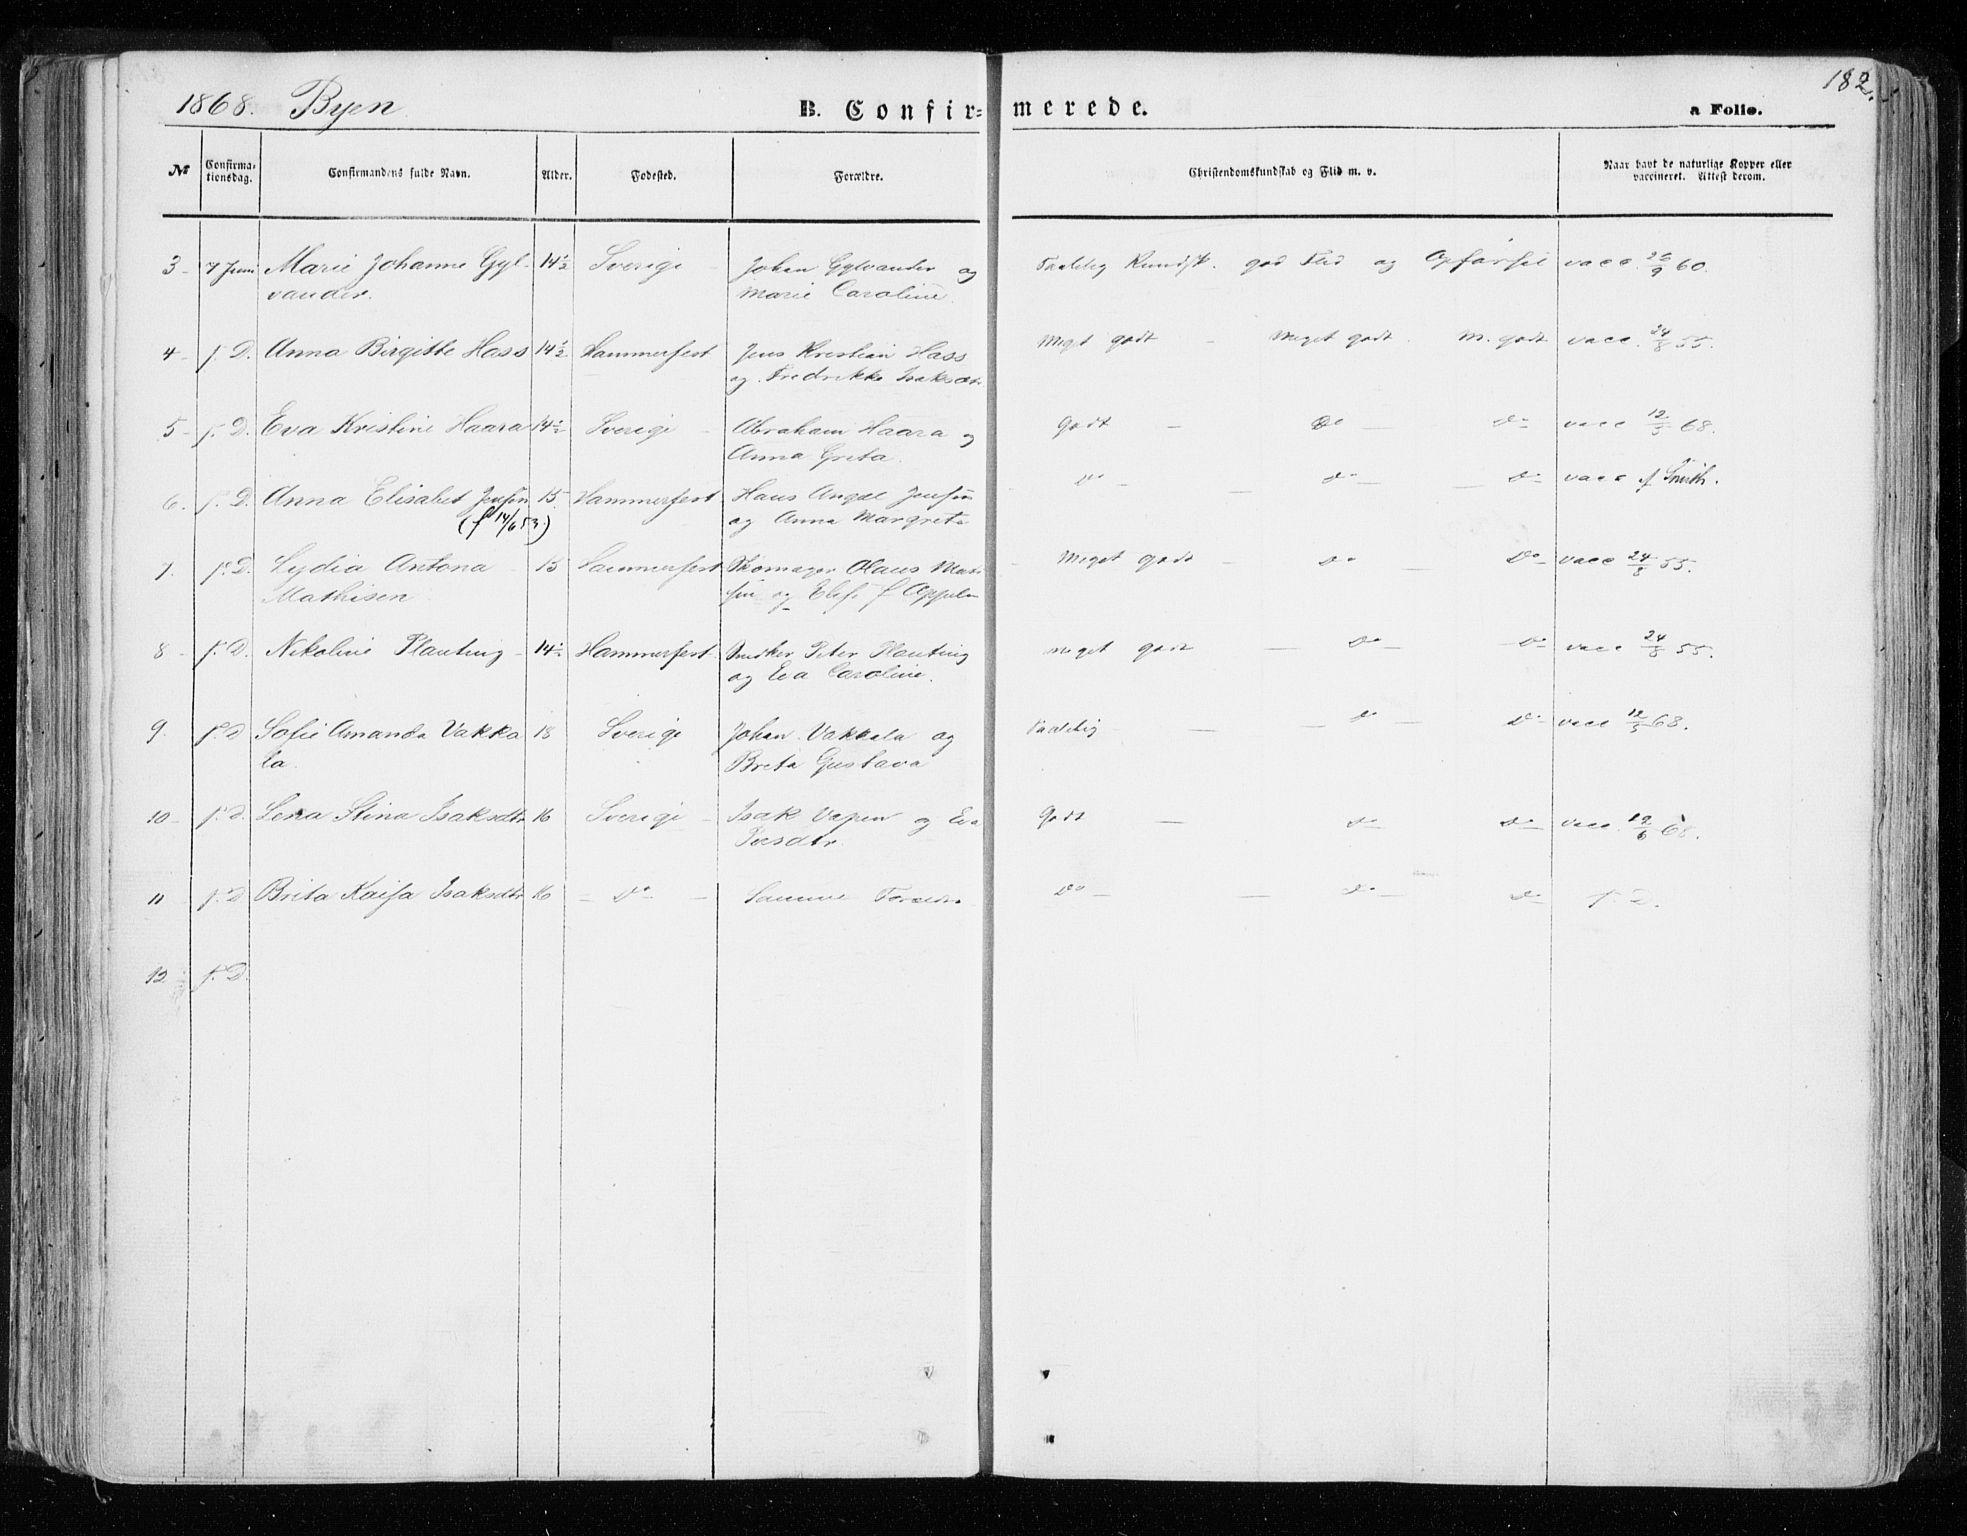 182.
1868. Byen
B. Confir- merede.
a Folio.
No
Confirma-
tionsdag.
Confirmandens fulde Navn.
Alder.
Fødested.
Forældre.
Christendomskundskab og Flid m. v.
Naar havt de naturlige Kopper eller
vaccineret. Attest derom.
3- 7 Juni Marie Johanne Gyl- 14½ Sverige - Johan Gylvander og Taalelig Kundsk. god Flid og Opførsel vacc. 26/9 60.
vander. Marie Caroline.
4- s. D. Anna Birgitte Hass 14½ Hammerfest Jens Kristian Hass Meget godt - Meget godt. M. godt vacc. 24/8 55.
og Fredrikke Isaksdtr
5- s. D. Eva Kristine Haara 14½ Sverige - Abraham Haara og Godt - Do - Do vacc 12/5 68.
Anna Greta.
6. s. D. Anna Elisabet Jensen 15. Hammerfest Hans Angel Jensen Do - - Do - - Do - vacc f Smith.
(f 14/6 53.) og Anna Margrete
7. s. D. Lydia Antona - 15 Hammerfest Olaus Mat- Meget godt - Do - Do - vacc 24/8 55.
Mathisen sen og Elis. f
8- s. D. Nikoline Planting - 14½ Hammerfest - Snedker Peter Planting meget godt - Do - Do vacc 24/8 55.
og Eva Caroline.
9. s. D Sofie Amanda Vakka 18 Sverige Johan Vakkala og Taalelig - - Do - Do - vacc 12/5 68.
la. Breta Gustava
10- s. D. Lena Stina Isaksdtr 16 Sverige - Isak Vapen og Eva Godt - Do - Do - vacc. 12/5 68.
11- s. D Brita Kaisa Isaksdtr 16 - Do - Samme Forældre Do - - Do - Do s. D.
12 s. D.